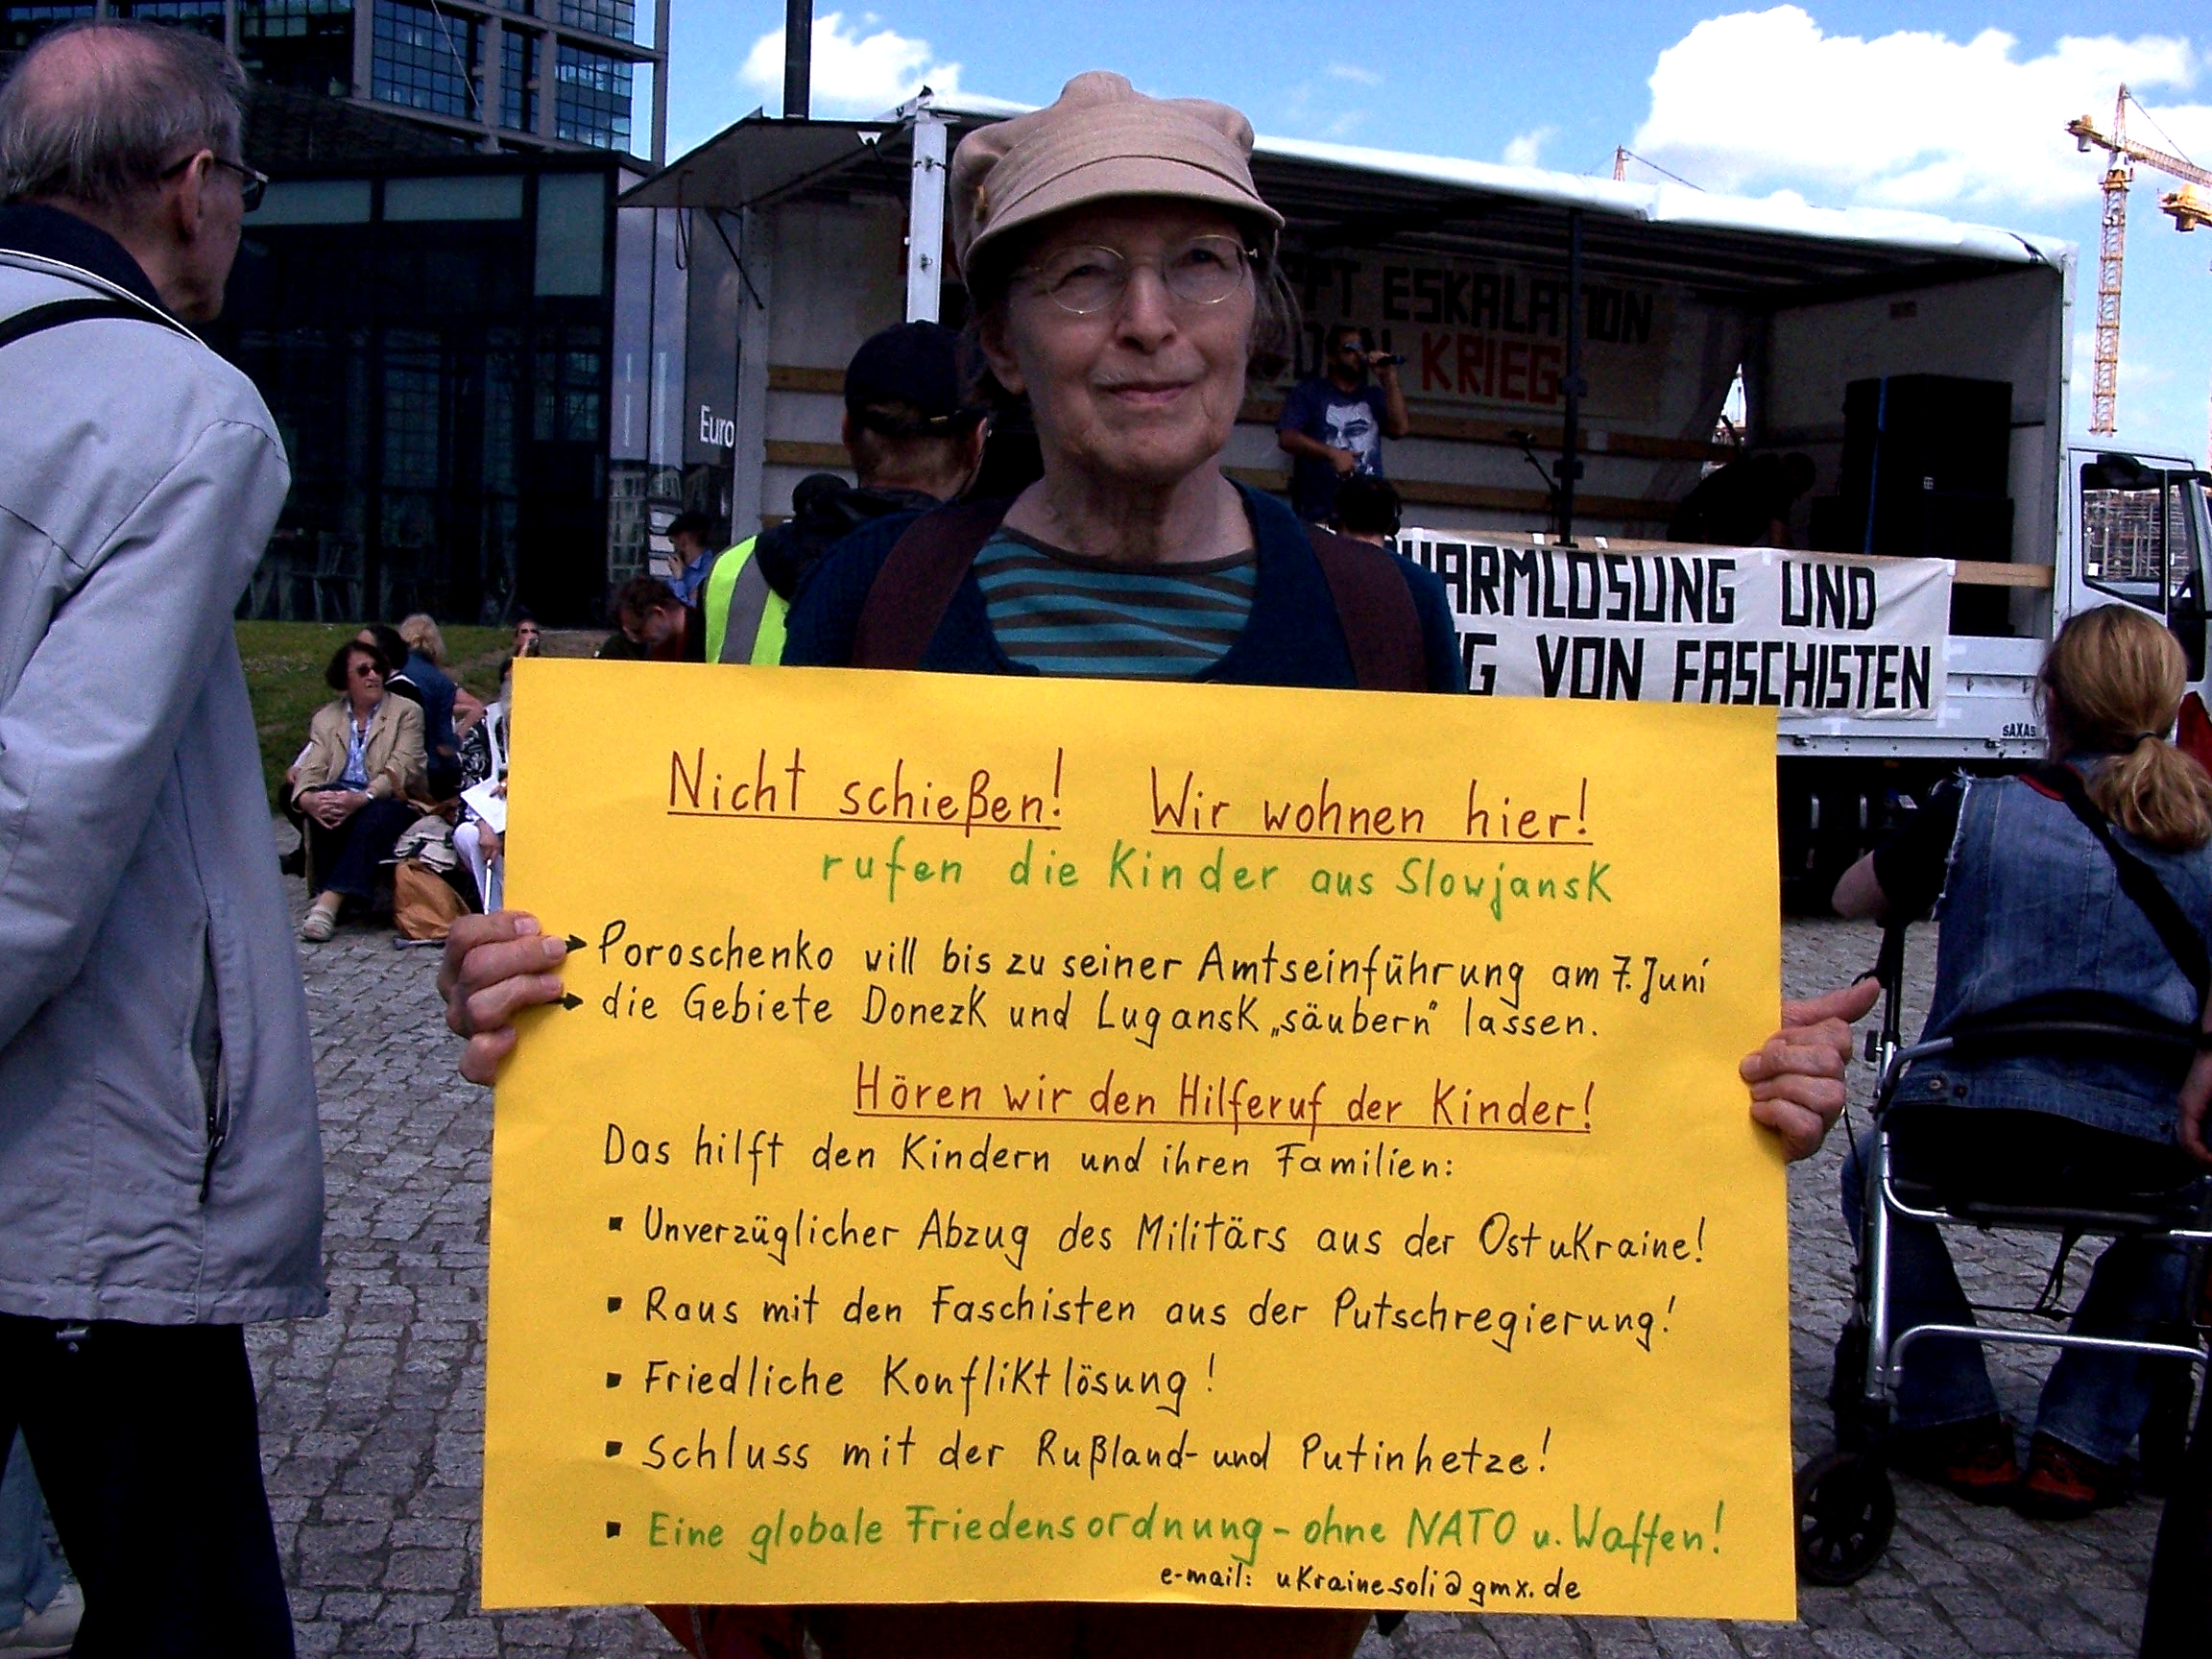 Euro
ESKALATION
KRIEG
UND
VON FASCHISTEN
SAXAS
Nicht schießen! Wir wohnen hier!
rufen die Kinder aus Slowjansk
Poroschenko will bis zu seiner Amtseinführung am 7. Juni
die Gebiete Donezk und Lugansk „säubern“ lassen.
Hören wir den Hilferuf der Kinder!
Das hilft den Kindern und ihren Familien:
▪ Unverzüglicher Abzug des Militärs aus der Ostukraine!
▪ Raus mit den Faschisten aus der Putschregierung!
▪ Friedliche Konfliktlösung!
▪ Schluss mit der Rußland- und Putinhetze!
▪ Eine globale Friedensordnung - ohne NATO u. Waffen!
e-mail: ukrainesoli@gmx.de